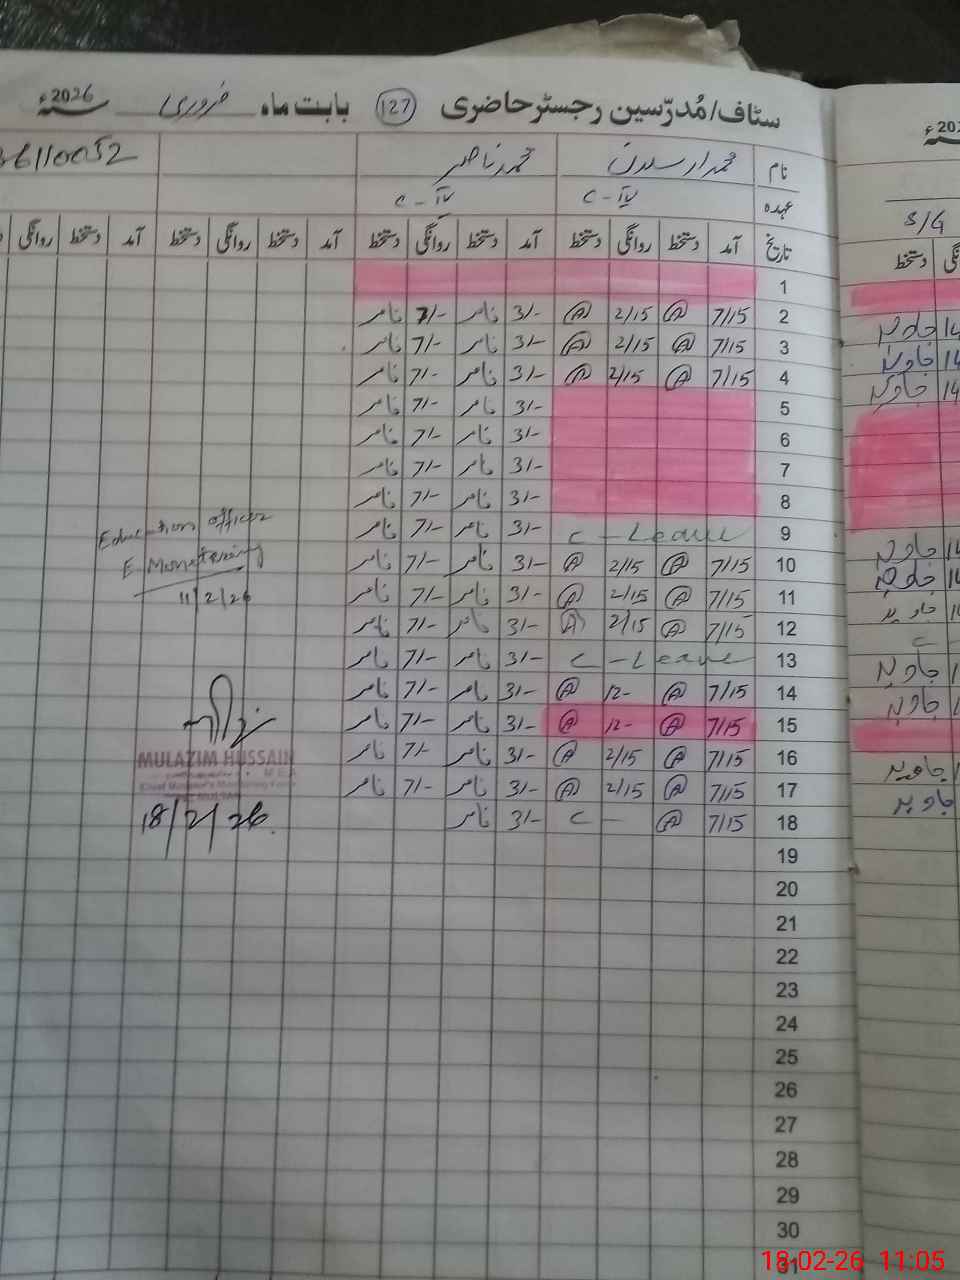 سٹاف/مُدرّسین رجسٹر حاضری (127) بابت ماہ فروری سنہ 2026ء
نام محمد ارسلان محمد ناصر 36110052
عہدہ C-IV C-IV
تاریخ آمد دستخط روانگی دستخط آمد دستخط روانگی دستخط آمد دستخط روانگی دستخط آمد دستخط روانگی
1
2 7/15 A 2/15 A 3/- ناصر 7/- ناصر
3 7/15 A 2/15 A 3/- ناصر 7/- ناصر
4 7/15 A 2/15 A 3/- ناصر 7/- ناصر
5 3/- ناصر 7/- ناصر
6 3/- ناصر 7/- ناصر
7 3/- ناصر 7/- ناصر
8 3/- ناصر 7/- ناصر
9 C-Leave 3/- ناصر 7/- ناصر
10 7/15 A 2/15 A 3/- ناصر 7/- ناصر
11 7/15 A 2/15 A 3/- ناصر 7/- ناصر
12 7/15 A 2/15 A 3/- ناصر 7/- ناصر
13 C-Leave 3/- ناصر 7/- ناصر
14 7/15 A 12- A 3/- ناصر 7/- ناصر
15 7/15 A 12- A 3/- ناصر 7/- ناصر
16 7/15 A 2/15 A 3/- ناصر 7/- ناصر
17 7/15 A 2/15 A 3/- ناصر 7/- ناصر
18 7/15 A C- 3/- ناصر
19
20
21
22
23
24
25
26
27
28
29
30
31
Education officer
E. Monetering
11/2/26
MULAZIM HUSSAIN
M.E.A
18/2/26
S/G
دستخط
جاوید 14
جاوید 14
جاوید 14
جاوید 14
جاوید 14
جاوید
C-
جاوید
جاوید
جاوید
جاوید
18-02-26 11:05